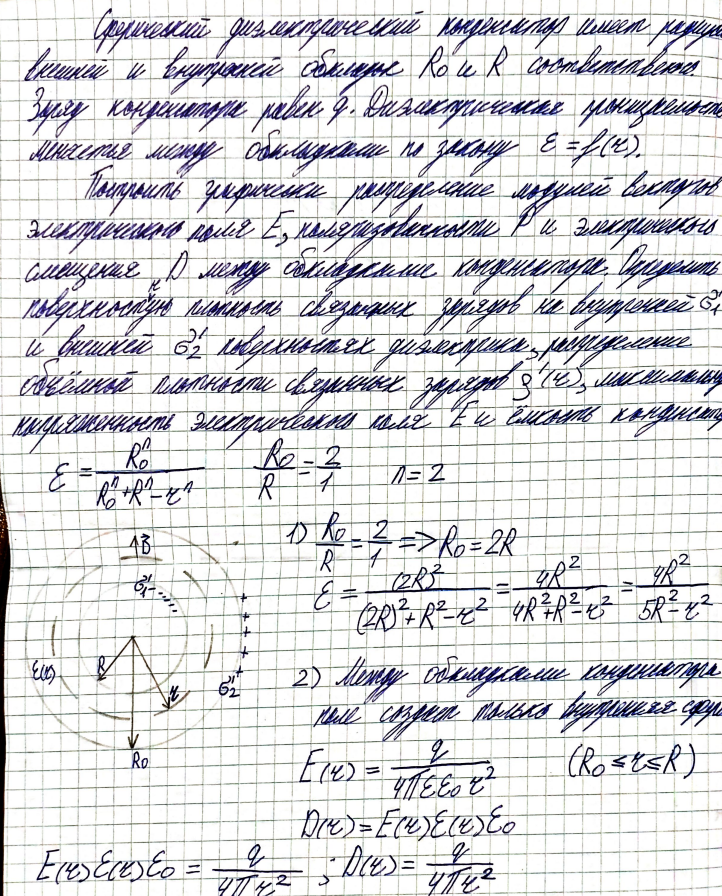 Сферический диэлектрический конденсатор имеет радиусы
внешней и внутренней обкладок R₀ и R соответственно.
Заряд конденсатора равен q. Диэлектрическая проницаемость
меняется между обкладками по закону ε = f(r).
Построить графически распределение модулей векторов
электрического поля E, поляризованности P и электрического
смещения D между обкладками конденсатора. Определить
поверхностную плотность связанных зарядов на внутренней σ₁'
и внешней σ₂' поверхностях диэлектрика, распределение
объёмной плотности связанных зарядов ρ'(r), максимальную
напряженность электрического поля E и ёмкость
ε = R₀ⁿ / (R₀ⁿ + Rⁿ - rⁿ) R₀/R = 2/1 n = 2
1) R₀/R = 2/1 => R₀ = 2R
ε = (2R)² / ((2R)² + R² - r²) = 4R² / (4R² + R² - r²) = 4R² / (5R² - r²)
σ₁' - - - -
ε(r) R r σ₂'
R₀
+ + + + + +
2) Между обкладками конденсатора
поле создаёт только внутренняя
E(r) = q / (4πεε₀r²) (R₀ ≤ r ≤ R)
D(r) = E(r)ε(r)ε₀
E(r)ε(r)ε₀ = q / (4πr²) ; D(r) = q / (4πr²)